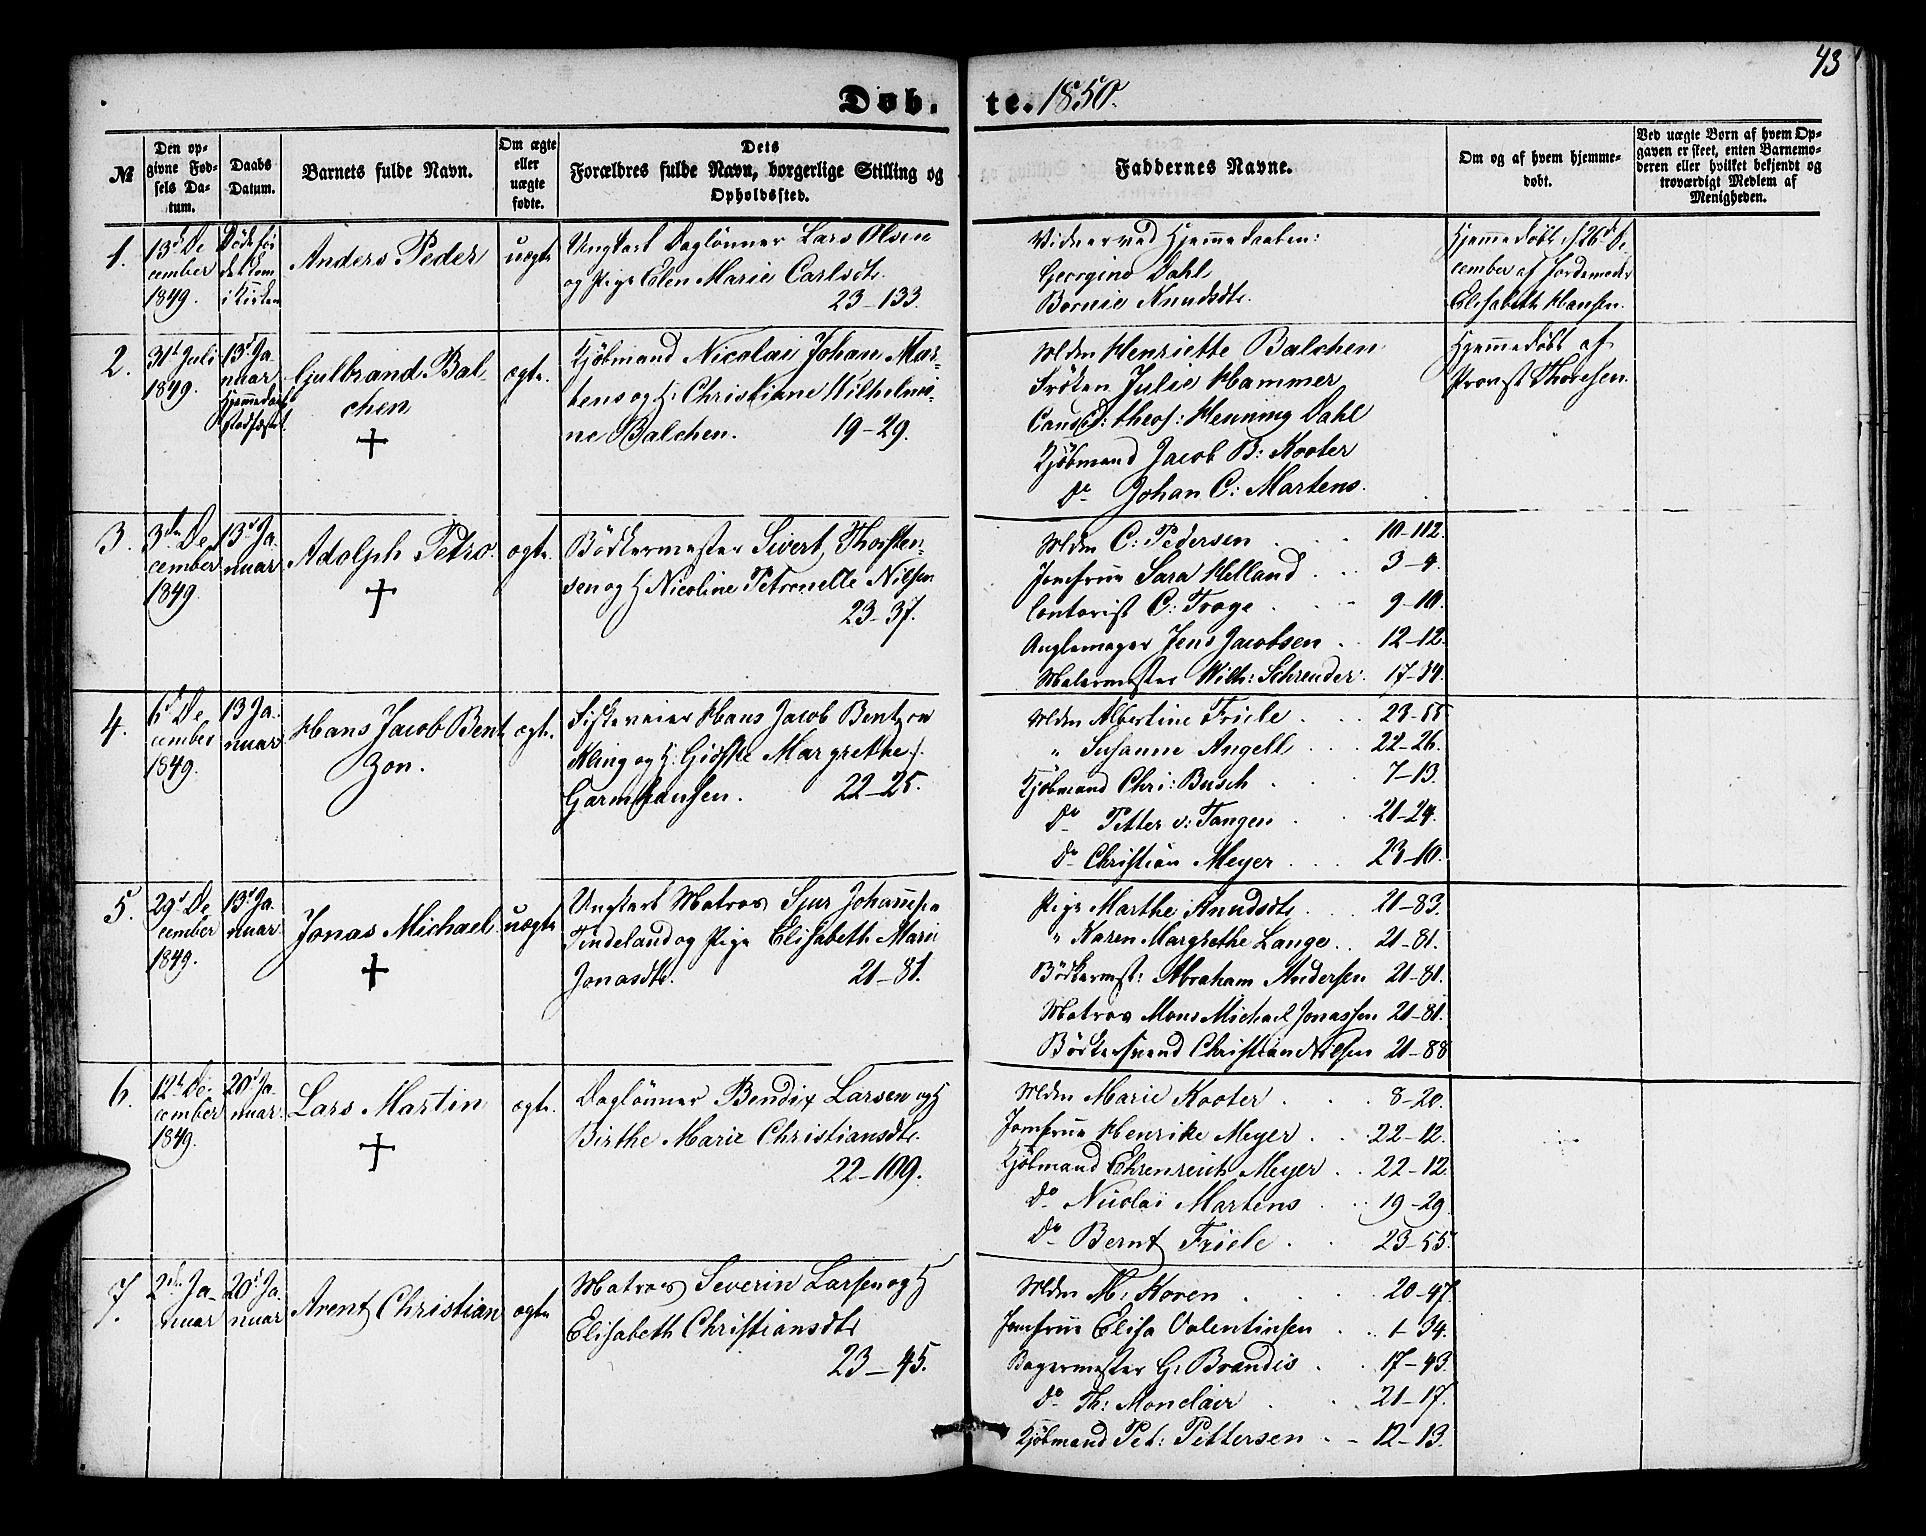 43
Døb. te. 1850.
№
Den op-
givne Fød-
sels Da-
tum.
Daabs
Datum.
Barnets fulde Navn.
Om ægte
eller
uægte
fødte.
Dets
Forældres fulde Navn, borgerlige Stilling og
Opholdssted.
Faddernes Navne.
Om og af hvem hjemme-
døbt.
Ved uægte Børn af hvem Op-
gaven er skeet, enten Barnemo-
deren eller hvilket bekjendt og
troværdigt Medlem af
Menigheden.
1.
13d De
cember
1849.
Døde før
det kom
i Kirken
Anders Peder
uægte
Ungkarl Daglønner Lars Olsen
og Pige Elen Marie Carlsdt.
23-133.
Vidner ved Hjemmedaaben:
Georgine Dahl
Knudsdt.
Hjemmedøbt d 26d De
cember af Jordemoder
Elisabeth Hansen.
2.
31t Juli
1849.
13d Ja
nuar
Hjemmedaab
stadfæstet
Gulbrand Bal-
chen
ægte.
Kjøbmand Nicolai Johan Mar-
tens og H: Christiane Wilhelmi-
ne Balchen. 19-29.
Mdm Henriette Balchen
Frøken Julie Hammer
Cand: theol: Henning Dahl
Kjøbmand Jacob B: Kooter
Do Johan C: Martens.
Hjemmedøbt af
Provst Thoresen.
3.
3die De
cember
1849.
13d Ja
nuar
Adolph Petro
ægte.
Bødkermester Sivert Thorsten-
sen og H Nicoline Petronelle Nilsen
23-37.
Mdm C: Pedersen . . . 10-112.
Jomfrue Sara Helland . . . 3-4.
Contorist C: Troye . . . 9-10.
Jens Jacobsen . . 12-12.
Malermester Wilh: Schreuder. 17-34.
4.
6d De
cember
1849.
13 Ja.
nuar
Hans Jacob Bent
zon.
ægte.
Fiskeveier Hans Jacob Bentzon
Kling og H: Giøske Margrethe f.
Garmhausen. 22-25.
Mdm Albertine Friele . . . 23-55
" Susanne Angell . . . 22-26.
Kjøbmand Chri: Busch . . . 7-13.
Do Petter v: Tangen . . 21-24.
Do Christian Meyer . . . 23-10.
5.
29d De
cember
1849.
13d Ja
nuar
Jonas Michael
uægte
Ungkarl Matros Sjur Johannesen
Tindeland og Pige Elisabeth Marie
Jonasdt. 21-81.
Pige Marthe Knudsdt. . . . 21-83.
" Karen Margrethe Lange . . 21-81.
Bødkermst: Abraham Andersen 21-81.
Matros Mons Michael Jonassen 21-81.
Bødkersvend Christian Nilsen 21-88
6.
12t De
cember
1849.
20d Ja
nuar.
Lars Martin
ægte.
Daglønner Bendix Larsen og H
Birthe Marie Christiansdt.
22-109.
Mdm Marie Kooter . . . 8-20.
Jomfrue Henrike Meyer . . . 22-12.
Kjøbmand Ehrenreich Meyer . . 22-12.
Do Nicolai Martens . . 19-29.
Do Bernt Friele . . . 23-55.
7.
2d Ja-
nuar
20d Ja
nuar
Arent Christian
ægte
Matros Severin Larsen og H
Elisabeth Christiansdt.
23-45.
Mdm M: Koren . . . 20-47.
Jomfrue Elisa Valentinsen . . 1-34.
Bagermester G: Brandis . . 17-43.
Do Th: Monclair . . . 21-17.
Kjøbmand Pet: Pettersen . - 12-13.